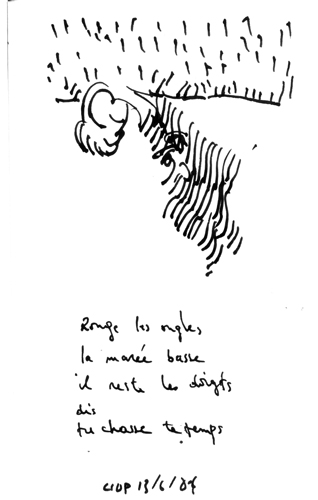 Ronge les ongles,
la marée basse
il reste les doigts
dis
tu chasse te temps
13/6/04